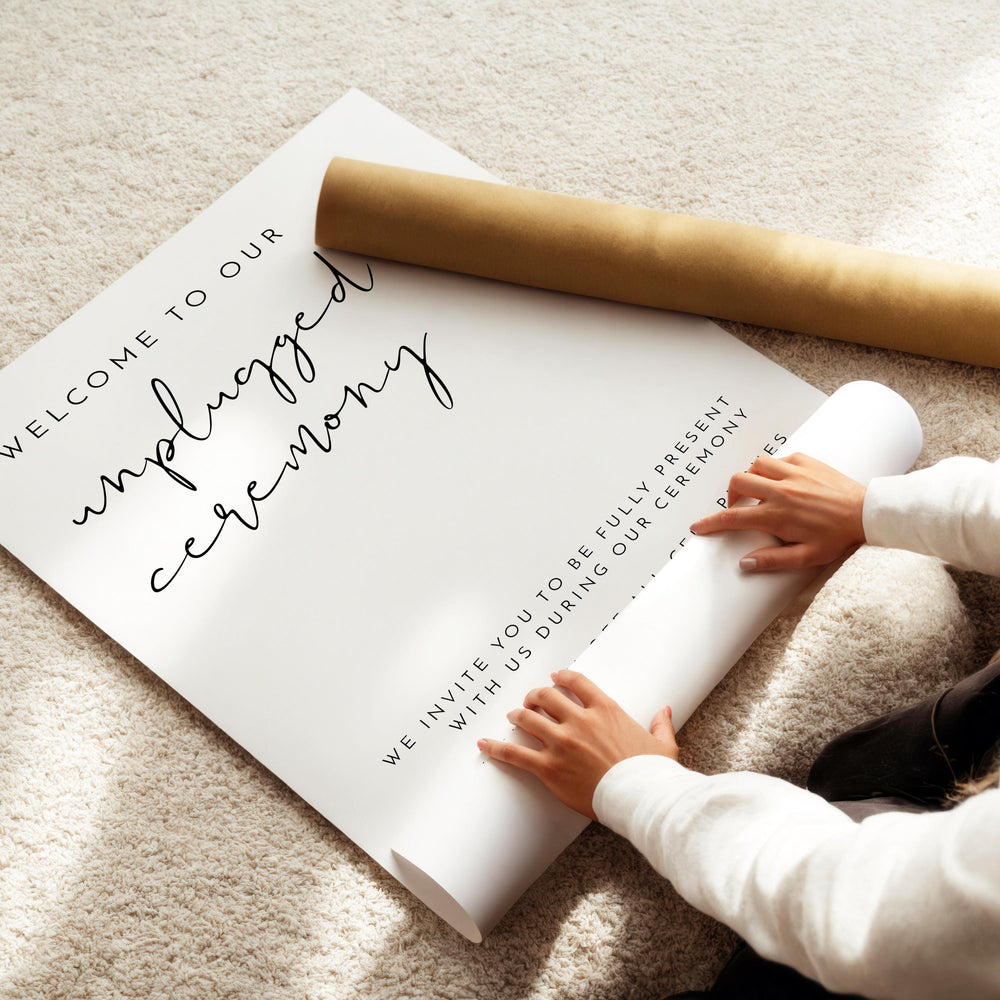 WELCOME TO OUR
unplugged
ceremony
WE INVITE YOU TO BE FULLY PRESENT
WITH US DURING OUR CEREMONY
ALL